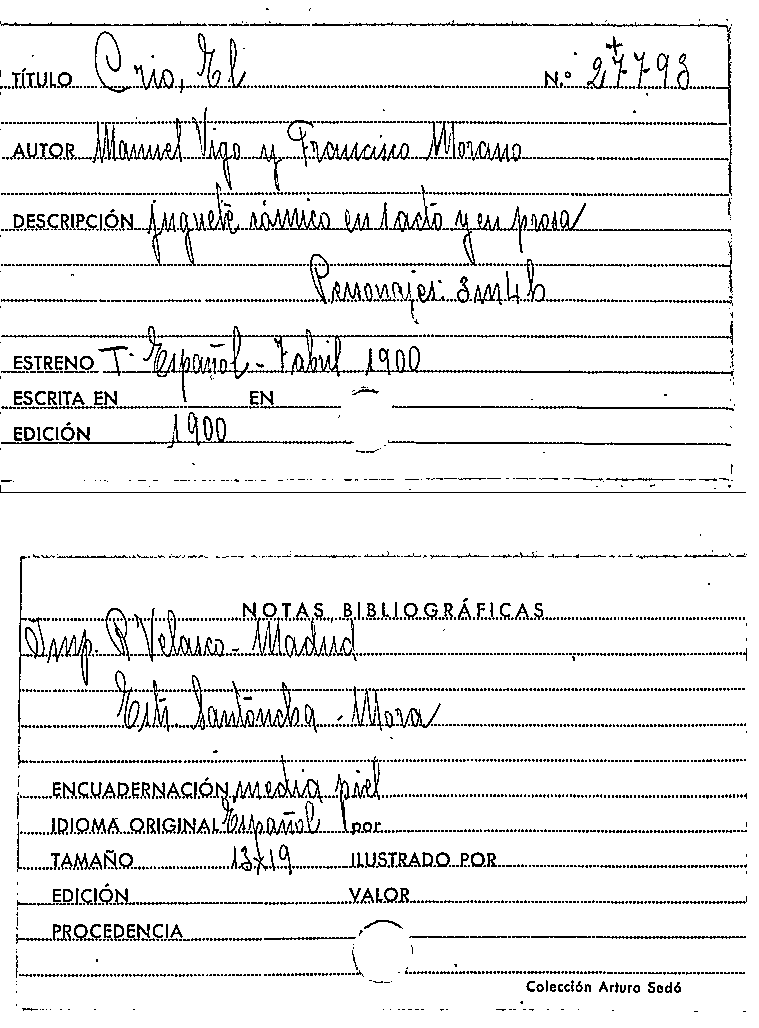 TÍTULO Crio, El N.º 27793
AUTOR Manuel Vigo y Francisco Morano
DESCRIPCIÓN juguete cómico en 1 acto y en prosa
Personajes: 3m4h
ESTRENO T. Español - 7 abril 1900
ESCRITA EN EN
EDICIÓN 1900
NOTAS BIBLIOGRÁFICAS
Imp. R Velasco - Madrid
Estr. - Mora
ENCUADERNACIÓN media piel
IDIOMA ORIGINAL Español por
TAMAÑO 13x19 ILUSTRADO POR
EDICIÓN VALOR
PROCEDENCIA
Colección Arturo Sedó